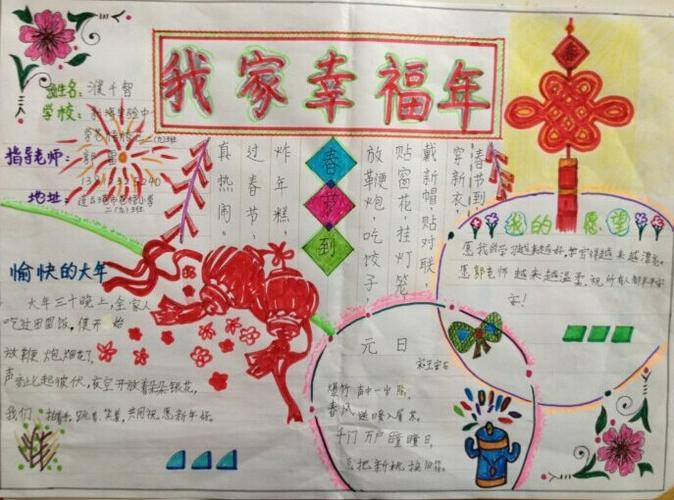 我家幸福年
姓名：濮千智
学校：
指导老师：
地址：
二(九)班
春节到
春节到，
穿新衣，
戴新帽，贴对联，
贴窗花，挂灯笼，
放鞭炮，吃饺子，
炸年糕，
过春节，
真热闹。
我的愿望
愿我的学习越来越好，
愿郭老师越来越温柔，祝所有人都来年好
愉快的大年
大年三十晚上，全家人
吃过团圆饭，便开始
放鞭炮，烟花了，
声音此起彼伏，夜空开放着朵朵银花，
我们拍着手，跳着，笑着，共同祝愿新年好。
元日
宋 王安石
爆竹声中一岁除，
春风送暖入屠苏。
千门万户曈曈日，
总把新桃换旧符。